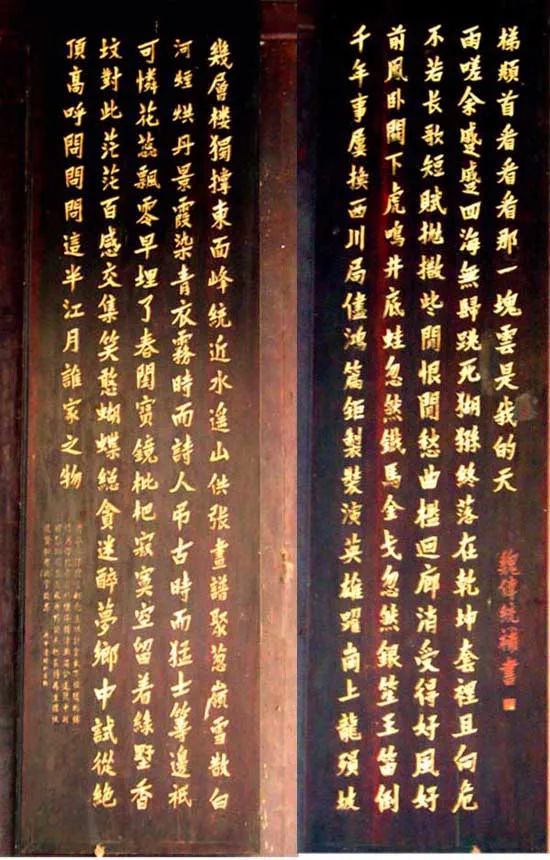 幾層樓獨撐東面峰統近水遙山供張畫譜聚蔥嶺雪散白
河煙烘丹景霞染青衣霧時而詩人吊古時而猛士籌邊祇
可憐花蕊飄零早埋了春閨寶鏡枇杷寂寞空留着綠墅香
墳對此茫茫百感交集笑憨蝴蝶總貪迷醉夢鄉中試從絕
頂高呼問問問這半江月誰家之物
千年事屢換西川局儘鴻篇鉅製裝演英雄躍崗上龍殞坡
前鳳臥關下虎鳴井底蛙忽然鐵馬金戈忽然銀笙玉笛倒
不若長歌短賦拋撒些閒恨閒愁曲檻迴廊消受得好風好
雨嗟余蹙蹙四海無歸跳死猢猻終落在乾坤套裡且向危
梯頫首看看看那一塊雲是我的天
魏傳統補書